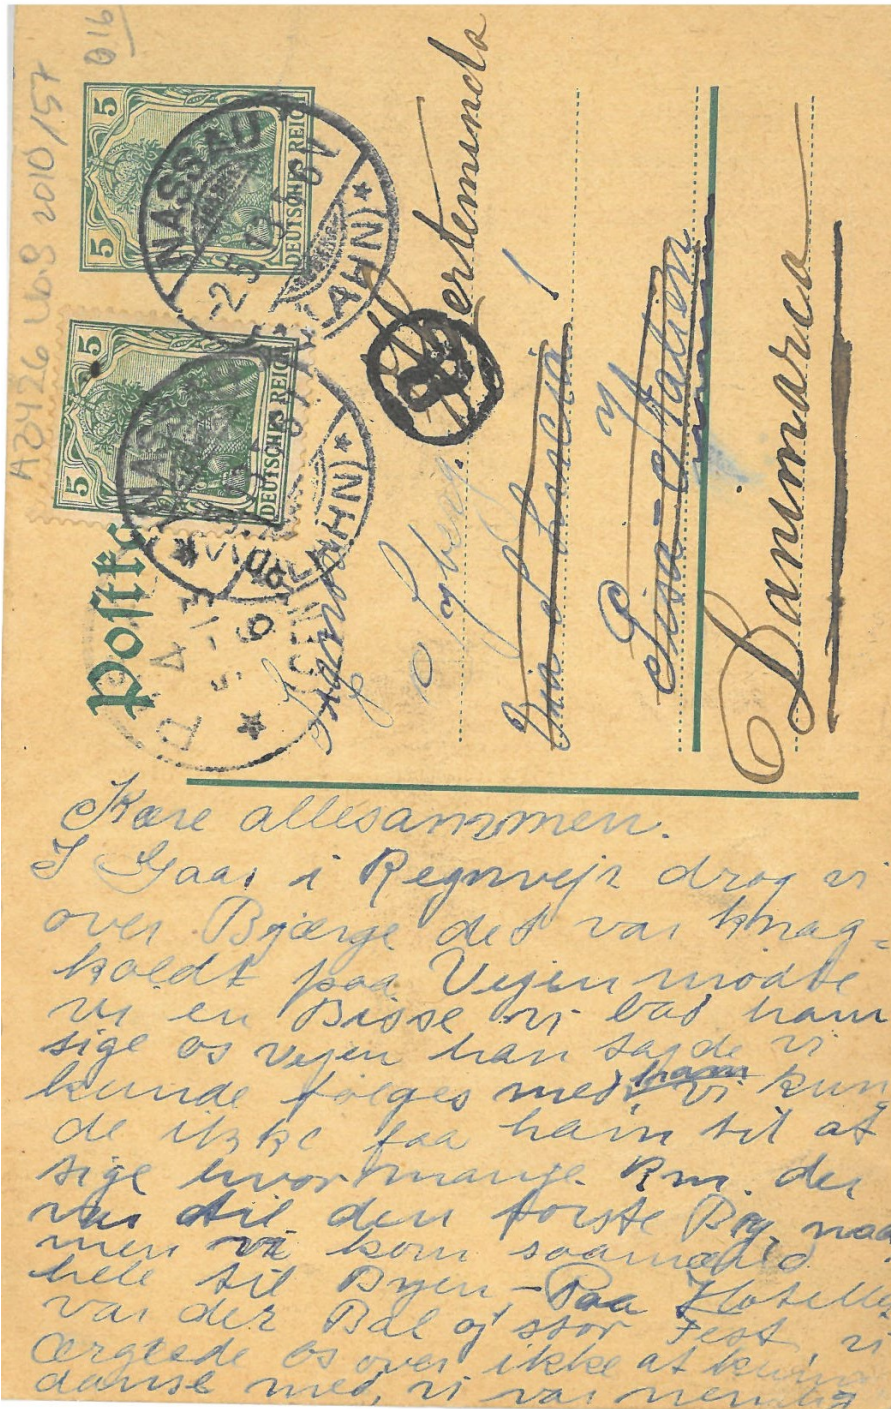 A3426 2010/57
5
DEUTSCHES REICH
5
5
DEUTSCHES REICH
5
NASSAU
(LAHN)
Postk
Kerteminde
Syberg.
Via S. Lucia 1
Pisa - Italien
Danimarca
Kære allesammen.
I Gaar i Regnvejr drog vi
over Bjærge det var knag-
koldt paa Vejen mødte
vi en Bisse vi bad ham
sige os vejen han sagde vi
kunde følges med ham vi kun
de ikke faa ham til at
sige hvor mange Km. der
var til den første By, naa
men vi kom saamænd
hele til Byen - Paa Hotelle
var der Bal og stor Fest, vi
ærgrede os over ikke at kunne
danse med, vi var nemlig